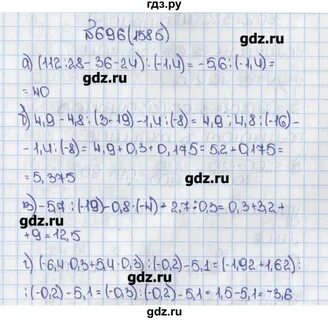 гдз.ру
№696(1585)
а) (112:28-36-24):(-1,4)=-56:(-1,4)=
=40
б) 4,9-4,8:(3-19)-1,4:(-8)=4,9:4,8:(-16)-
-1,4:(-8)=4,9+0,3+0,175=5,2+0,175=
=5,375
в) -5,7:(-19)-0,8·(-4)+2,7:0,3=0,3+3,2+
+9=12,5
г) (-6,4·0,3+5,4·0,3):(-0,2)-5,1=(-1,92+1,62):
:(-0,2)-5,1=(-0,3):(-0,2)-5,1=1,5-5,1=-3,6